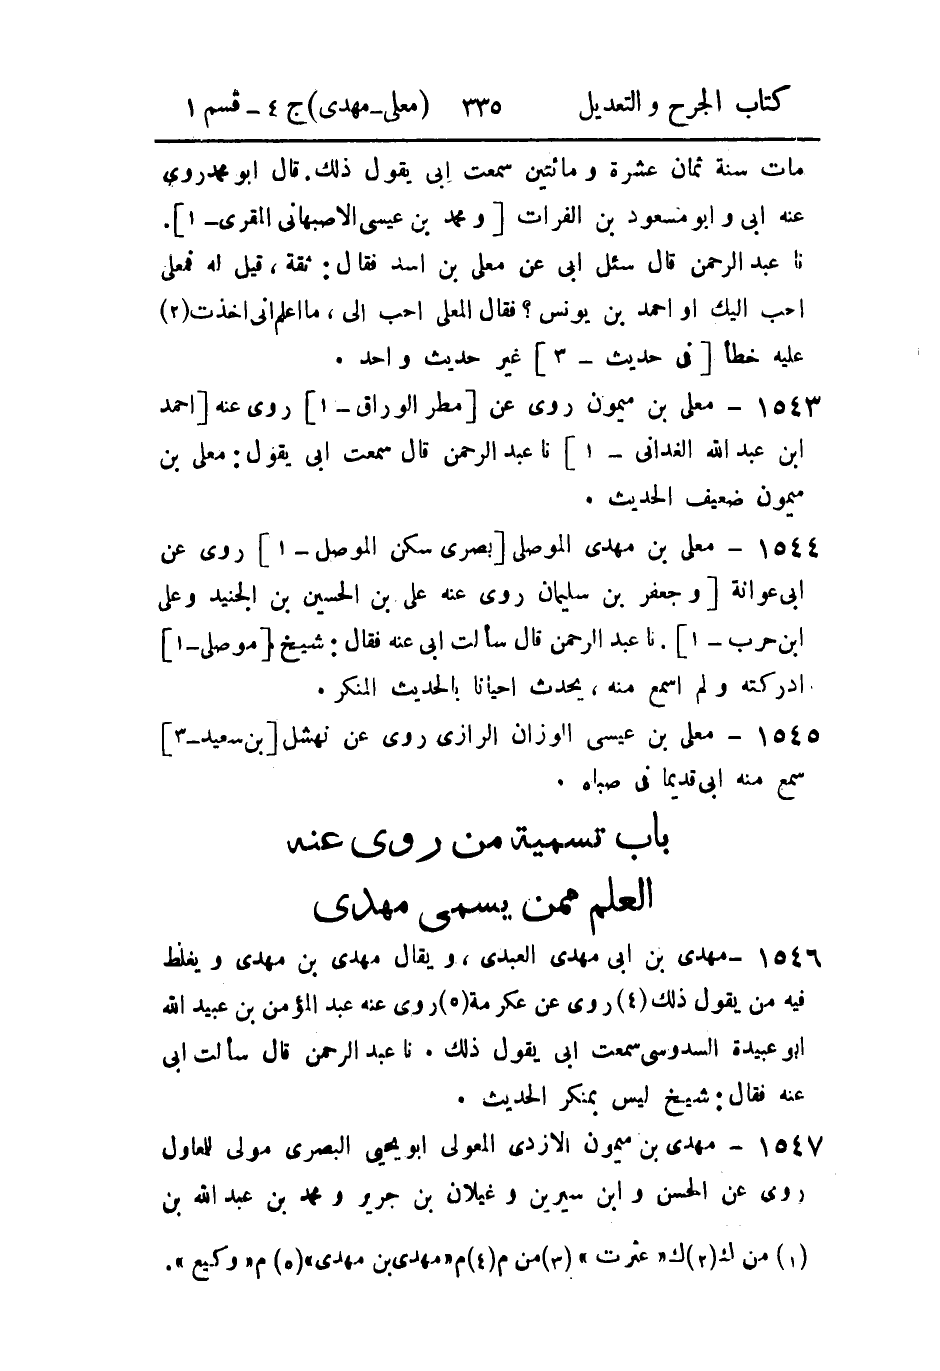 كتاب الجرح و التعديل ٣٣٥ (معلى-مهدى) ج ٤ - قسم ١
مات سنة ثمان عشرة و مائتين سمعت ابى يقول ذلك. قال ابو محمد روى
عنه ابى و ابو مسعود بن الفرات [ و محمد بن عيسى الاصبهانى المقرى - ١ ].
نا عبد الرحمن قال سئل ابى عن معلى بن اسد فقال: ثقة، قيل له فمعلى
احب اليك او احمد بن يونس؟ فقال المعلى احب الى، ما اعلم انى اخذت(٢)
عليه خطأ [ فى حديث - ٣ ] غير حديث واحد .
١٥٤٣ - معلى بن ميمون روى عن [ مطر الوراق - ١ ] روى عنه [ احمد
ابن عبد الله الغدانى - ١ ] نا عبد الرحمن قال سمعت ابى يقول: معلى بن
ميمون ضعيف الحديث .
١٥٤٤ - معلى بن مهدى الموصلى [ بصرى سكن الموصل - ١ ] روى عن
ابى عوانة [ و جعفر بن سليمان روى عنه على بن الحسين بن الجنيد وعلى
ابن حرب - ١ ] . نا عبد الرحمن قال سألت ابى عنه فقال: شيخ [ موصلى - ١ ]
ادركته و لم اسمع منه، يحدث احيانا بالحديث المنكر .
١٥٤٥ - معلى بن عيسى الوزان الرازى روى عن نهشل [ بن سعيد - ٣ ]
سمع منه ابى قديما فى صباه .
باب تسمية من روى عنه
العلم ممن يسمى مهدى
١٥٤٦ - مهدى بن ابى مهدى العبدى، و يقال مهدى بن مهدى و يغلط
فيه من يقول ذلك (٤) روى عن عكرمة (٥) روى عنه عبد المؤمن بن عبيد الله
ابو عبيدة السدوسى سمعت ابى يقول ذلك . نا عبد الرحمن قال سألت ابى
عنه فقال: شيخ ليس بمنكر الحديث .
١٥٤٧ - مهدى بن ميمون الازدى المعولى ابو يحيى البصرى مولى للمعاول
روى عن الحسن و ابن سيرين و غيلان بن جرير و محمد بن عبد الله بن
(١) من ك (٢) ك» عثرت « (٣) من م (٤) م «مهدى بن مهدى» (٥) م» وكيع «.